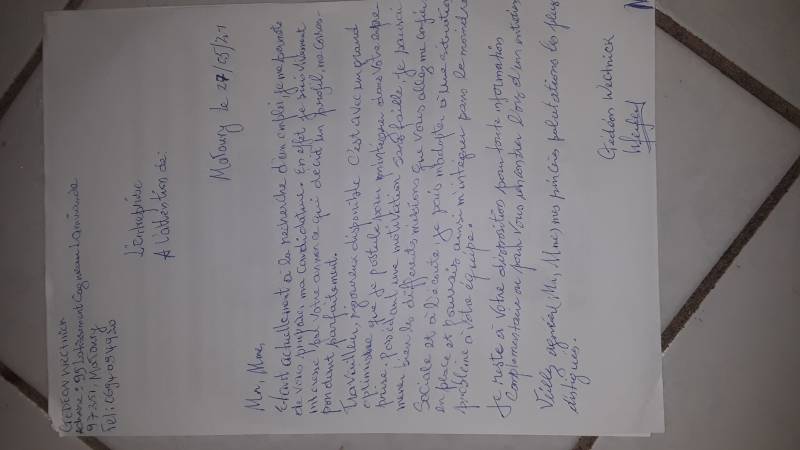 GEDEON WECHNICK
Adresse: 99 Lotissement Cogneau Lamirande
97351, Matoury
Tel: 0694094920
L'entreprise
A l'attention de:
Matoury le 27/05/21
Mr, Mme,
Etant actuellement à la recherche d'un emploi, je me permets
de vous proposer ma candidature. En effet je suis vivement
interessé par votre annonce qui décrit un profil, me corres-
pondant parfaitement.
Travailleur, rigoureux disponible C'est avec un grand
optimisme que je postule pour m'intégrer dans votre entre-
prise. Possédant une motivation sans faille, je pourrai
mener bien les différents missions que vous allez me confier
Sociale et à l'écoute, je sais m'adapter à une situation
en place et pourrais ainsi m'intégrer sans le moindre
problème à votre équipe.
Je reste à votre disposition pour toute information
complementaire ou pour vous rencontrer lors d'un entretien
Veillez agréer (Mr, Mme) mes salutations les plus
distigues.
Gédéon Wechnick